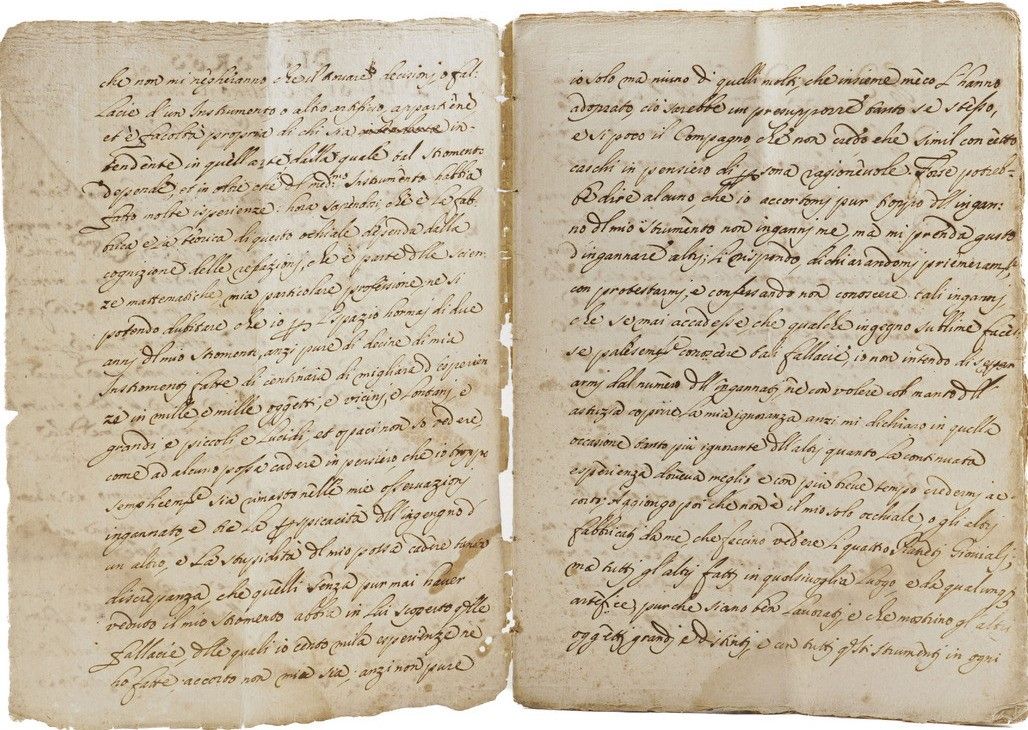 che non mi negheranno che il trovare decisioni, o fal:
lacie d'un Instrumento o altro artifitio appartiene
et è facoltà propria di chi sia in:
tendente in quell'arte dalla quale tal Stromento
depende, et in oltre che d'l med.mo Instrumento habbia
fatto molte isperienze: hora sapendosi che è la fab
brica e la teorica di questo occhiale dependa dalla
cognizione delle refrazioni, che è parte d'lle scien,
ze mattematiche, mia particolare professione, ne si
potendo dubitare che io p lo spazio hormai di due
anni d'l mio Stromento, anzi pure di decine di mia
Instromenti fatte di centinaia di migliara d'esperien
ze in mille, e mille oggetti, e vicini, e lontani, e
grandi, e piccoli e lucidi, et opaci non so vedere,
come ad alcuno possa cadere in pensiero che io troppo
sempliceme.te sia rimasto nelle mie osservazioni
ingannato e che la p spicacità d'll'ingegno d'
un altro, e la stupidità d'l mio possa cadere tanta
discrepanza che quelli senza pur mai haver
veduto il mio Stromento abbia in lui scoperto d'lle
fallacie, d'lle quali io ch'ò mila esperienze ne
ho fatte, accorto non mia sia; anzi non pure
io solo ma niuno di quelli molti che insieme meco l'hanno
adoprato ciò sarebbe un presupporre tanto se stesso,
e si poco il Compagno che non credo che simil concetto
caschi in pensiero di p sona ragionevole. Forse potreb=
be dire alcuno, che io accortomi pur troppo d'll'ingan:
no d'l mio strumento non inganni me, ma mi prenda gusto
d'ingannare altri; li rispondo, dichiarandomi primieram.te
con protestarmi, e confessando non conoscere tali inganni
che se mai accadesse che qualche ingegno sublime faces
se palesem.te conoscere tali fallacie, io non intendo di separ
armi dal numero d'll'ingannati, ne con volere col manto d'll'
astuzia coprire la mia ignoranza anzi mi dichiaro in quella
occasione tanto più ignorante d'll'altri quanto la continuata
esperienza doveva meglio e con più breve tempo rendermi ac
corto: sogiongo poi che non è il mio solo occhiale, o gli altri
fabbricati da me che faccino vedere li quattro Pianeti Gioviali;
ma tutti gl'altri fatti in qualsivoglia luogo e da qualunq
artefice, purchè siano ben lavorati, e che mostrino gl'altri
oggetti grandi, e distinti, e con tutti q.sti strumenti in ogni